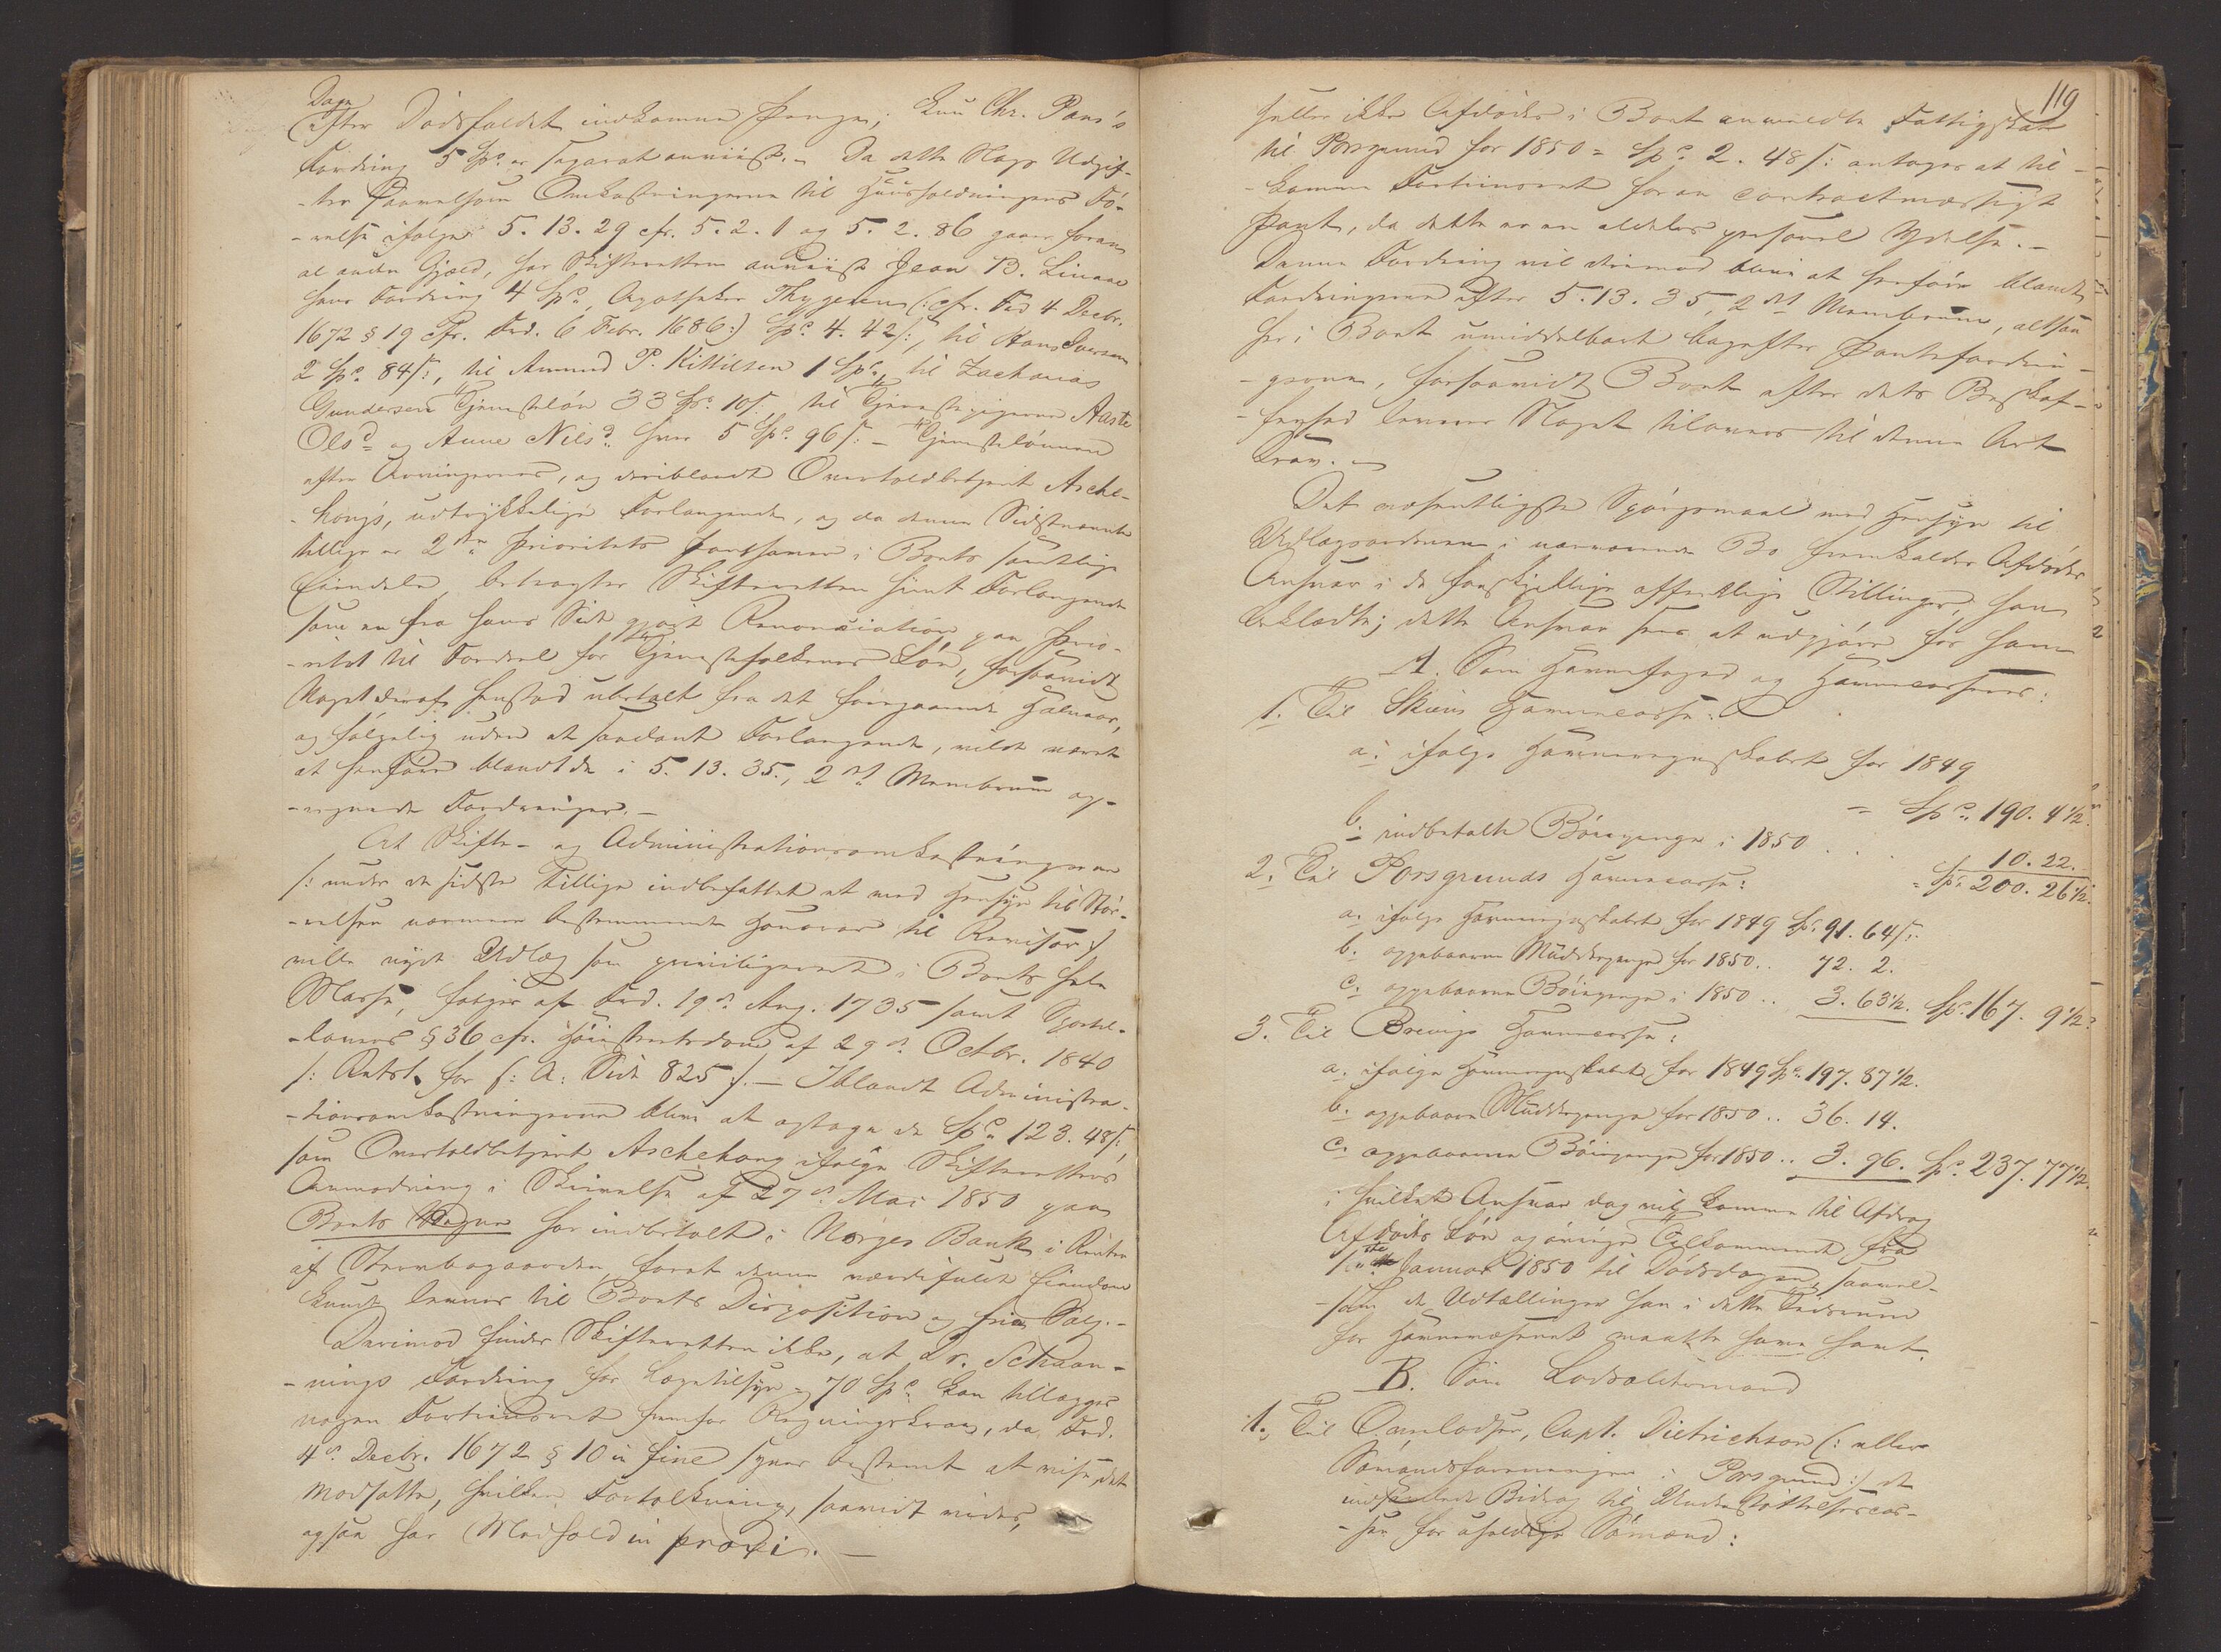 Dagen
efter Dødsfaldet indkomne Penge; kun Chr. Paus's
Fordring 5 Spd. er separat anviist. – Da dette Slags Udgif-
-ter saavelsom Omkostningerne til Huusholdningens Fø-
-relse ifølge 5. 13. 29 cfr. 5. 2. 1 og 5. 2. 86 gaaer foran
al anden Gjæld, har Skifteretten anviist Jean B. Linaae
hans Fordring 4 Spd., Apotheker Thygesen (: cfr. Frd 4 Decbr.
1672 § 19 cfr. Frd. 6 Febr. 1686 :) Spd. 4. 42 ß:, til Hans Iversen
2 Spd. 84 ß:, til Amund P. Kittilsen 1 Spd., til Zacharias
Gundersen Tjenesteløn 33 Spd. 10 ß. til Tjenestepigerne Aaste
Olsd. og Anne Nilsd. hver 5 Spd. 96 ß: – Tjenestelønnen
efter Arvingernes, og deriblandt Overtoldbetjent Asche-
-hougs, udtrykkelige Forlangende, og da denne Sidstnævnte
tillige er 2den Prioritets Panthaver i Boets samtlige
Eiendele, betragter Skifteretten hiint Forlangende
som en fra hans Side gjort Renonciation paa Prio-
-ritet til Fordeel for Tjenestefolkenes Løn, forsaavidt
Noget deraf henstod ubetalt fra det foregaaende Halvaar,
og følgelig uden et saadant Forlangende, vilde været
at henføre blandt de i 5. 13. 35, 2det Membrum op-
-regnede Fordringer. –
At Skifte- og Administrationsomkostningerne
/: under de sidste tillige indbefattet et med Hensyn til Stør-
-relsen nærmere bestemmende Honorar til Revisor :/
ville nyde Udlæg som priviligeret i Boets hele
Masse, følger af Frd. 19de Aug. 1735 samt Sportel-
-lovens § 36 cfr. Høiesteretsdom af 29de Octbr. 1840
/: Retst. for (: A: Side 825 :/. – Iblandt Administra-
-tionsomkostningerne blive at optage de Spd. 123. 48 ß:,
som Overtoldbetjent Aschehoug ifølge Skifterettens
Anmodning i Skrivelse af 27de Mai 1850 paa
Boets Vegne har indbetalt i Norges Bank i Renter
af Stervbogaarden, forat denne værdifulde Eiendom
kunde komme til Boets Disposition og frie Salg. –
Derimod finder Skifteretten ikke, at Dr. Schaan-
-nings Fordring for Lægetilsyn 70 Spd. kan tillægges
nogen Fortrinsret fremfor Regningskrav, da Frd.
4de Decbr. 1672 § 10 in fine synes bestemt at vise det
modsatte, hvilken Fortolkning, saavidt vides,
ogsaa har Medhold in praxi. –
119
Heller ikke Afdødes i Boet anmeldte Fattigskat
til Porsgrund for 1850 = Spd. 2. 48 ß: antages at til-
-komme Fortrinsret foran contractmæssigt
Pant, da dette er en aldeles personel Ydelse. –
Denne Fordring vil derimod blive at henføre blandt
Fordringerne efter 5. 13. 35, 2det Membrum, altsaa
her i Boet umiddelbart bagefter Pantefordrin-
-gerne, forsaavidt Boet efter dets Beskaf-
-fenhed levner Noget tilovers til denne Art
Krav. –
Det væsentligste Spørgsmaal med Hensyn til
Udlægsordenen i nærværende Bo fremkalder Afdødes
Ansvar i de forskjellige offentlige Stillinger, han
beklædte; dette Ansvar sees at udgjøre for ham
A. Som Havnefoged og Havnecasserer:
1. Til Skiens Havnecasse:
a: ifølge Havneregnskabet for 1849
= Spd. 190. 4 1/2.
b: indbetalte Bøiepenge i 1850 . . . 10. 22.
= Spd. 200. 26 1/2.
2. Til Porsgrunds Havnecasse:
a. ifølge Havneregnskabet for 1849 Spd. 91. 64 ß:
b. oppebaarne Mudderpenge for 1850 .. 72. 2.
c. oppebaarne Bøiepenge i 1850 .. 3. 63 1/2. Spd. 167. 9 1/2.
3. Til Brevigs Havnecasse:
a. ifølge Havneregnskabet for 1849 Spd. 197. 87 1/2.
b. oppebaarne Mudderpenge for 1850 .. 36. 14.
c. oppebaarne Bøiepenge for 1850 .. 3. 96. Spd. 237. 77 1/2.
i hvilket Ansvar dog vil komme til Afdrag
Afdødes Løn og øvrige Tilkommende fra
1ste Januar 1850 til Dødsdagen, saavel-
-som de Udtællinger han i dette Tidsrum
for Havnevæsenet maatte have havt.
B. Som Lodsoldermand
1. Til Overlodsen, Capt. Dietrichson (: eller
Sømandsforeningen i Porsgrund :) de
indsamlede Bidrag til Understøttelsescas-
-sen for uheldige Sømænd: